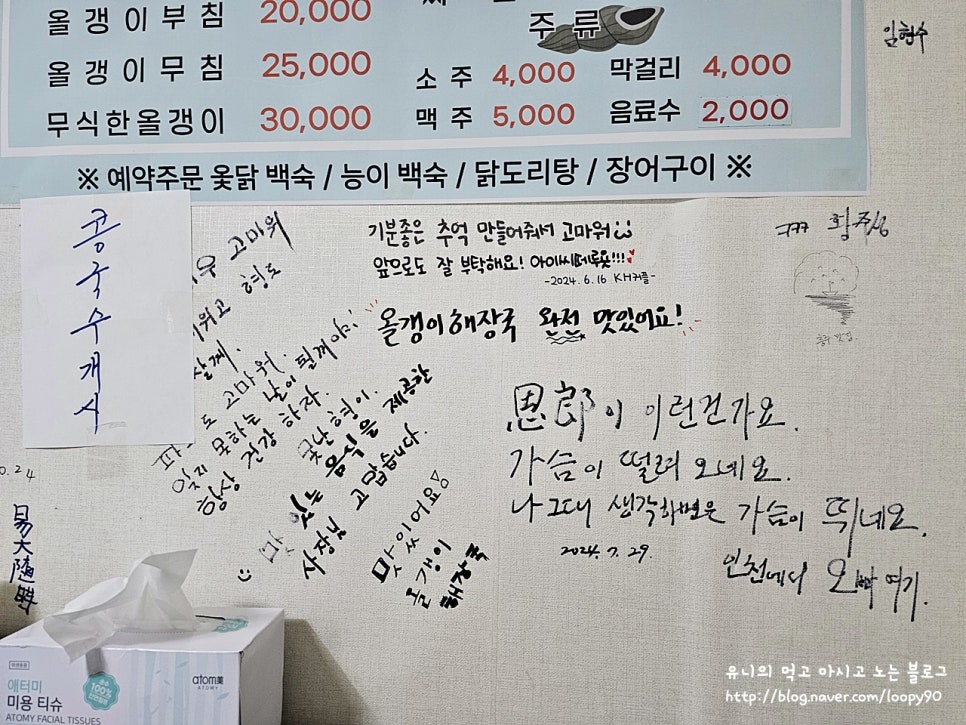 올갱이부침 20,000
올갱이무침 25,000
무식한올갱이 30,000
주류
소주 4,000
맥주 5,000
막걸리 4,000
음료수 2,000
※ 예약주문 옻닭 백숙 / 능이 백숙 / 닭도리탕 / 장어구이 ※
임형수
콩국수개시
고마워
형도
살께.
도 고마워.
잊지 못하는 날이 될꺼야!
항상 건강 하자.
못난 형이.
맛있는 음식을 제공한
사장님 고맙습니다.
맛있어요
올갱이
해장국
기분좋은 추억 만들어줘서 고마워
앞으로도 잘 부탁해요! 아이씨떼루욧!!!
-2024.6.16 KH커플-
올갱이해장국 완전 맛있어요!
恩郎이 이런건가요.
가슴이 떨려 오네요.
나 그대 생각하면은 가슴이 뛰네요.
2024.7.29.
인천에디 오빠 여기.
0.24
애터미
미용 티슈
ATOMY FACIAL TISSUES
100%
atom美
ATOMY
유니의 먹고 마시고 노는 블로그
http://blog.naver.com/loopy90